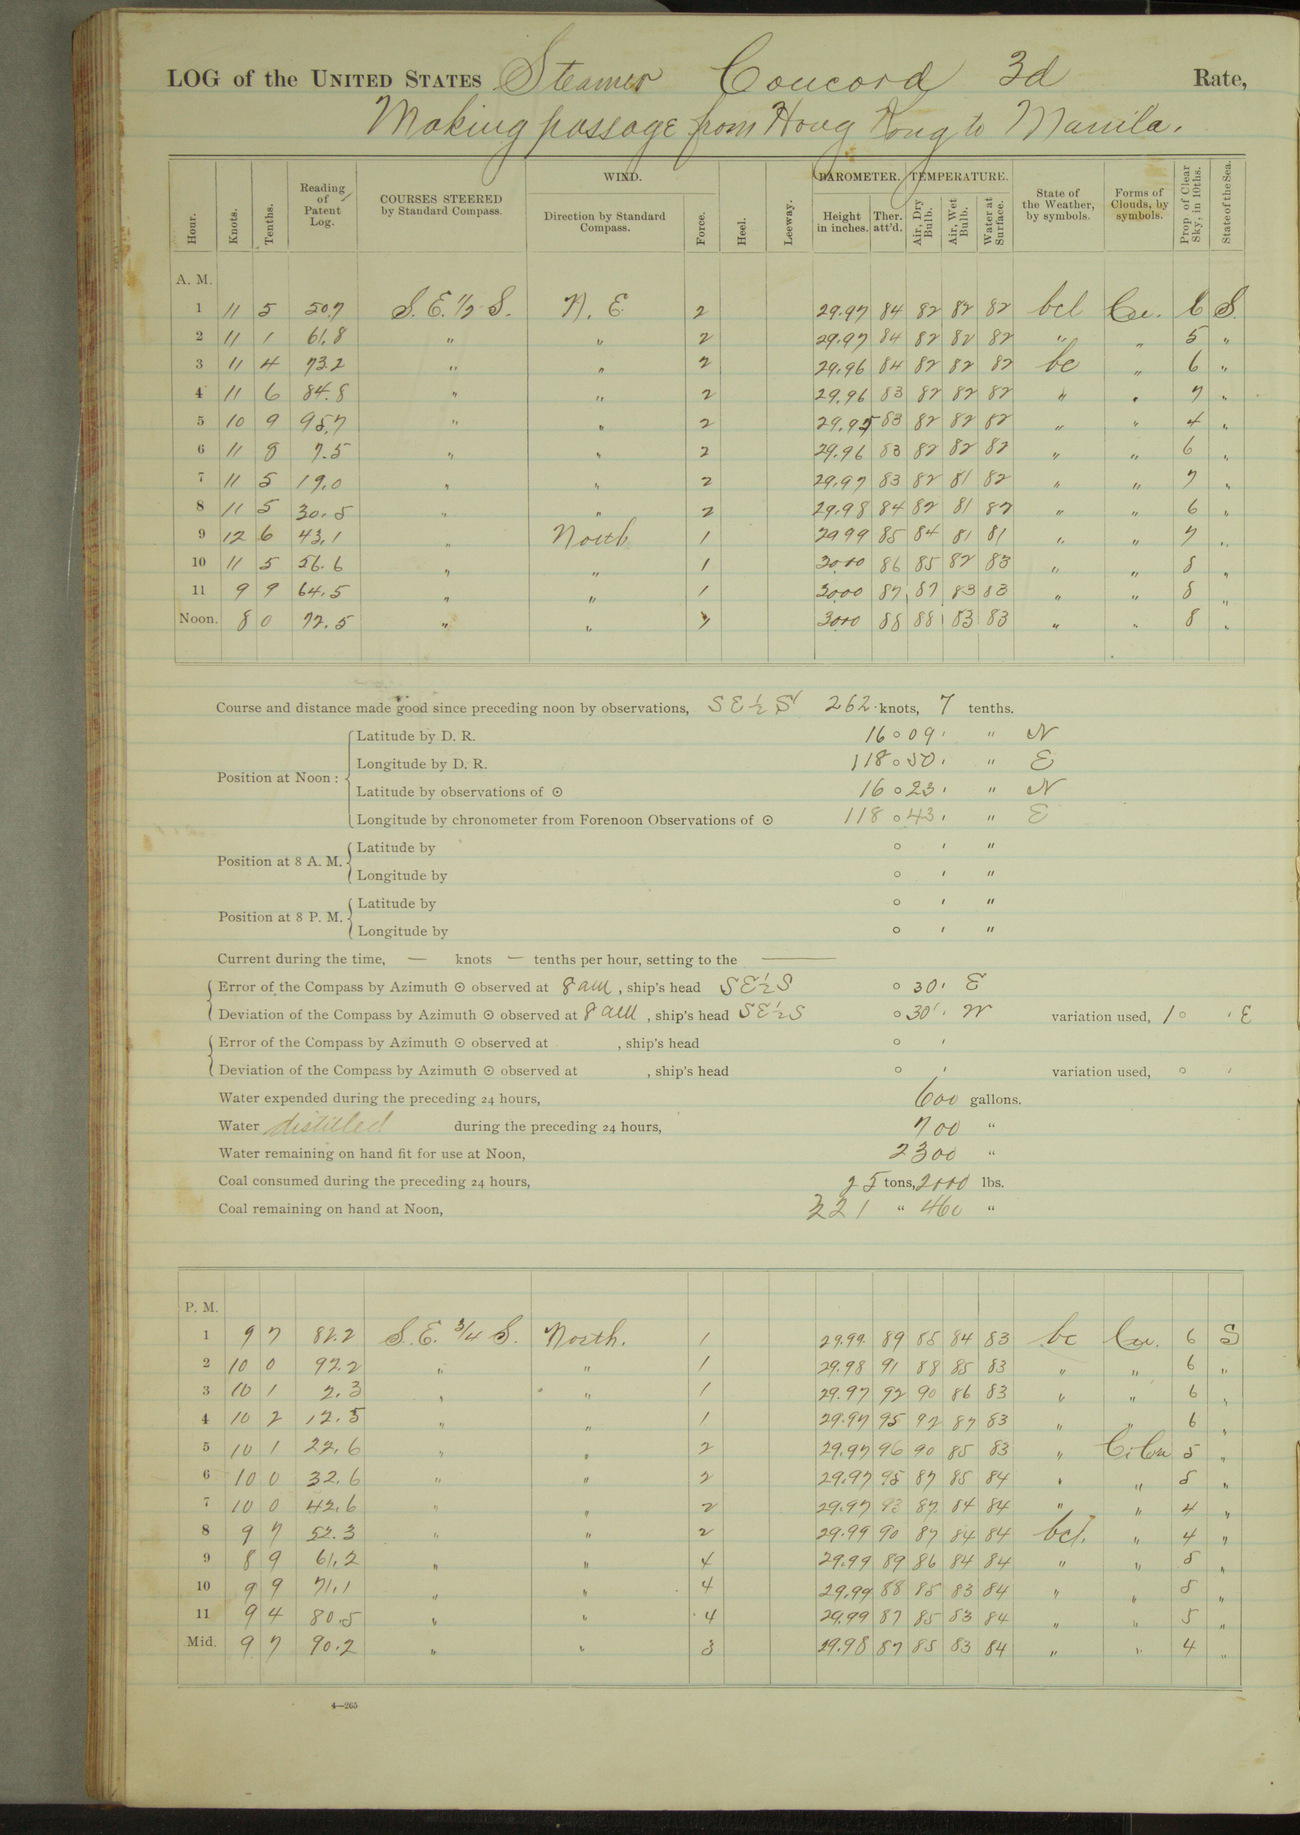 LOG of the UNITED STATES Steamer Concord 3d Rate,
Making passage from Hong Kong to Manila.
WIND. BAROMETER. TEMPERATURE.
Hour. Knots. Tenths. Reading of Patent Log. COURSES STEERED by Standard Compass. Direction by Standard Compass. Force. Heel. Leeway. Height in inches. Ther. att'd. Air, Dry Bulb. Air, Wet Bulb. Water at Surface. State of the Weather, by symbols. Forms of Clouds, by symbols. Prop. of Clear Sky, in 10ths. State of the Sea.
A. M.
1 11 5 50.7 S.E. 1/2 S. N. E. 2 29.97 84 82 82 82 bcl Cu. 6 S.
2 11 1 61.8 " " 2 29.97 84 82 82 82 " " 5 "
3 11 4 73.2 " " 2 29.96 84 82 82 82 bc " 6 "
4 11 6 84.8 " " 2 29.96 83 82 82 82 " " 7 "
5 10 9 95.7 " " 2 29.95 83 82 82 82 " " 4 "
6 11 8 7.5 " " 2 29.96 83 82 82 82 " " 6 "
7 11 5 19.0 " " 2 29.97 83 82 81 82 " " 7 "
8 11 5 30.5 " " 2 29.98 84 82 81 82 " " 6 "
9 12 6 43.1 " North 1 29 99 85 84 81 81 " " 7 "
10 11 5 56.6 " " 1 30.00 86 85 82 83 " " 8 "
11 9 9 64.5 " " 1 30.00 87 87 83 83 " " 8 "
Noon. 8 0 72.5 " " 30.00 88 88 83 83 " " 8 "
Course and distance made good since preceding noon by observations, SE 1/2 S 262 knots, 7 tenths.
Latitude by D. R. 16 ° 09 ' " N
Longitude by D. R. 118 ° 50 ' " E
Position at Noon :
Latitude by observations of ⊙ 16 ° 23 ' " N
Longitude by chronometer from Forenoon Observations of ⊙ 118 ° 43 ' " E
Latitude by ° ' "
Position at 8 A. M.
Longitude by ° ' "
Latitude by ° ' "
Position at 8 P. M.
Longitude by ° ' "
Current during the time, — knots — tenths per hour, setting to the —
Error of the Compass by Azimuth ⊙ observed at 8 am , ship's head SE 1/2 S ° 30 ' E
Deviation of the Compass by Azimuth ⊙ observed at 8 am , ship's head SE 1/2 S ° 30 ' W variation used, 1 ° ' E
Error of the Compass by Azimuth ⊙ observed at , ship's head ° '
Deviation of the Compass by Azimuth ⊙ observed at , ship's head ° ' variation used, ° '
Water expended during the preceding 24 hours, 600 gallons.
Water distilled during the preceding 24 hours, 700 "
Water remaining on hand fit for use at Noon, 2300 "
Coal consumed during the preceding 24 hours, 25 tons, 2000 lbs.
Coal remaining on hand at Noon, 321 " 460 "
P. M.
1 9 7 82.2 S.E. 3/4 S. North. 1 29.99 89 85 84 83 bc Cu. 6 S
2 10 0 92.2 " " 1 29.98 91 88 85 83 " " 6 "
3 10 1 2.3 " " 1 29.97 92 90 86 83 " " 6 "
4 10 2 12.5 " " 1 29.97 95 92 87 83 " " 6 "
5 10 1 22.6 " " 2 29.97 96 90 85 83 " Ci Cu 5 "
6 10 0 32.6 " " 2 29.97 95 87 85 84 " " 5 "
7 10 0 42.6 " " 2 29.97 93 87 84 84 " " 4 "
8 9 7 52.3 " " 2 29.99 90 87 84 84 bcl. " 4 "
9 8 9 61.2 " " 4 29.99 89 86 84 84 " " 5 "
10 9 9 71.1 " " 4 29.99 88 85 83 84 " " 5 "
11 9 4 80.5 " " 4 29.99 87 85 83 84 " " 5 "
Mid. 9 7 90.2 " " 3 29.98 87 85 83 84 " " 4 "
4—265